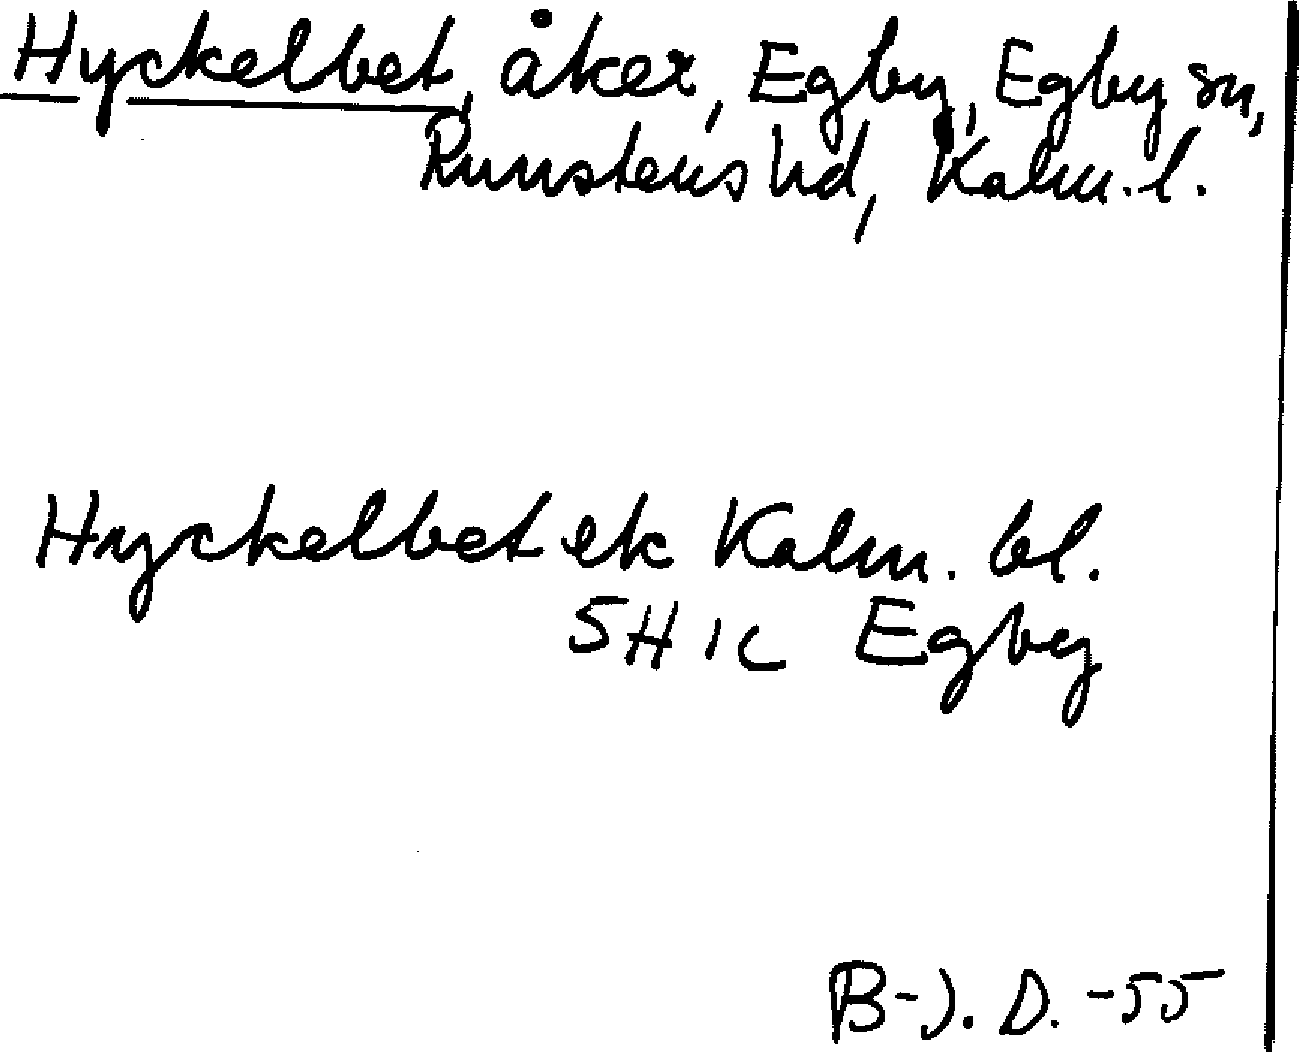 Hyckelbet, åker, Egby, Egby sn,
Runstens hd, Kalm. l.
Hyckelbet ek Kalm. bl.
5H 1c Egby
B-J. D. -55